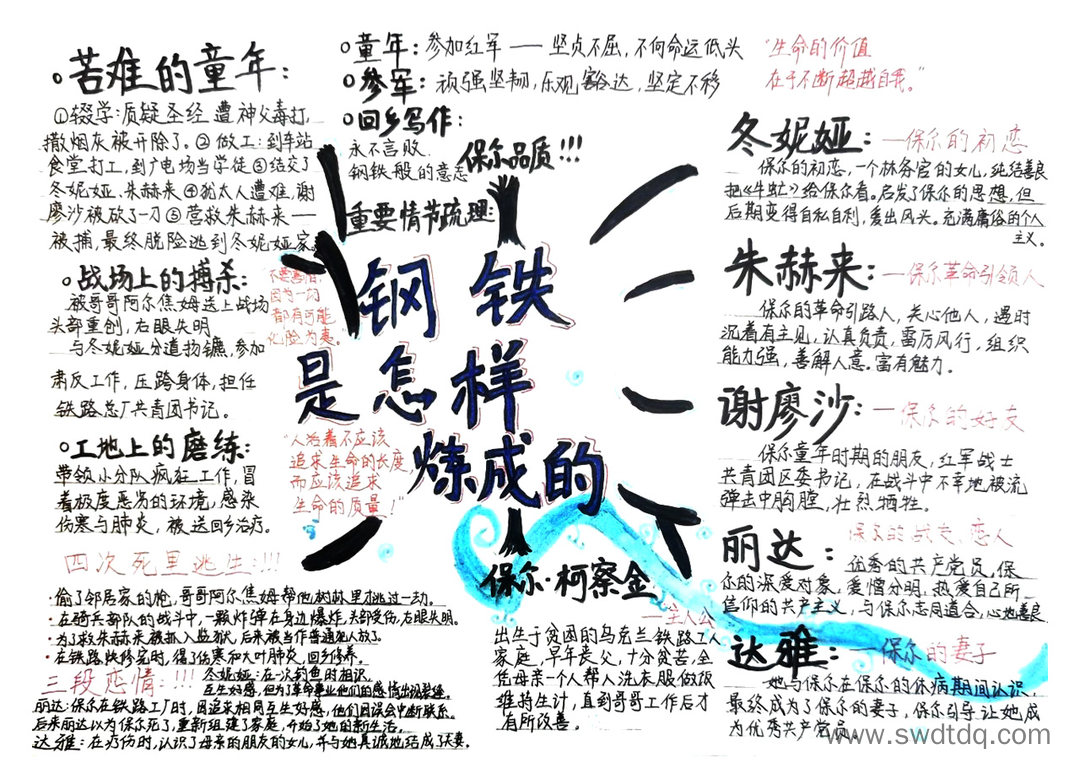 苦难的童年:
①辍学:质疑圣经 遭神父毒打,
撒烟灰被开除了。②做工:到车站
食堂打工,到广电场当学徒③结交了
冬妮娅、朱赫来④犹太人遭难,谢
廖沙被砍了一刀⑤营救朱赫来——
被捕,最终脱险逃到冬妮娅家
战场上的搏杀:
被哥哥阿尔焦姆送上战场
头部重创,右眼失明
与冬妮娅分道扬镳,参加
肃反工作,压跨身体,担任
铁路总厂共青团书记。
工地上的磨练:
带领小分队疯狂工作,冒
着极度恶劣的环境,感染
伤寒与肺炎,被送回乡治疗。
四次死里逃生:!!!
·偷了邻居家的枪,哥哥阿尔焦姆帮他
·在骑兵部队的战斗中,一颗炸弹在身边爆炸,头部受伤,右眼失明。
·为了救朱赫来被抓入监狱,后来被当作普通犯人放了。
·在铁路快修完时,得了伤寒和大叶肺炎,回乡修养。
三段恋情:!!!
冬妮娅:在一次钓鱼时相识,
互生好感,但为了革命事业他们的感情出现裂缝。
丽达:保尔在铁路工厂时,因追求相同互生好感,他们因误会中断联系。
后来丽达以为保尔死了,重新组建了家庭,开始了她的新生活。
达雅:在疗伤时,认识了母亲的朋友的女儿,并与她真诚地结成了夫妻。
童年:参加红军——坚贞不屈,不向命运低头
参军:顽强坚韧,乐观豁达,坚定不移
回乡写作:
永不言败,
钢铁般的意志
保尔品质!!!
重要情节疏理:
"生命的价值
在于不断超越自我。"
不要害怕,
因为一切
都有可能
化险为夷。
钢铁
是怎样
炼成的
"人活着不应该
追求生命的长度
而应该追求
生命的质量!"
保尔·柯察金
—主人公
出生于贫困的乌克兰铁路工人
家庭,早年丧父,十分贫苦,全
凭母亲一个人帮人洗衣服做饭
维持生计,直到哥哥工作后才
有所改善。
冬妮娅:—保尔的初恋
保尔的初恋,一个林务官的女儿,纯结善良
把《牛虻》给保尔看。启发了保尔的思想,但
后期变得自私自利,爱出风头。充满庸俗的个人
主义。
朱赫来:—保尔革命引领人
保尔的革命引路人,关心他人,遇时
沉着有主见,认真负责,雷厉风行,组织
能力强,善解人意。富有魅力。
谢廖沙:—保尔的好友
保尔童年时期的朋友,红军战士
共青团区委书记,在战斗中不幸地被流
弹击中胸膛,壮烈牺牲。
丽达:保尔的战友、恋人
优秀的共产党员,保
尔的深爱对象,爱憎分明,热爱自己所
信仰的共产主义,与保尔志同道合,心地善良
达雅:—保尔的妻子
她与保尔在保尔的休病期间认识,
最终成为了保尔的妻子,保尔引导让她成
为优秀共产党员。
www.swdtdq.com